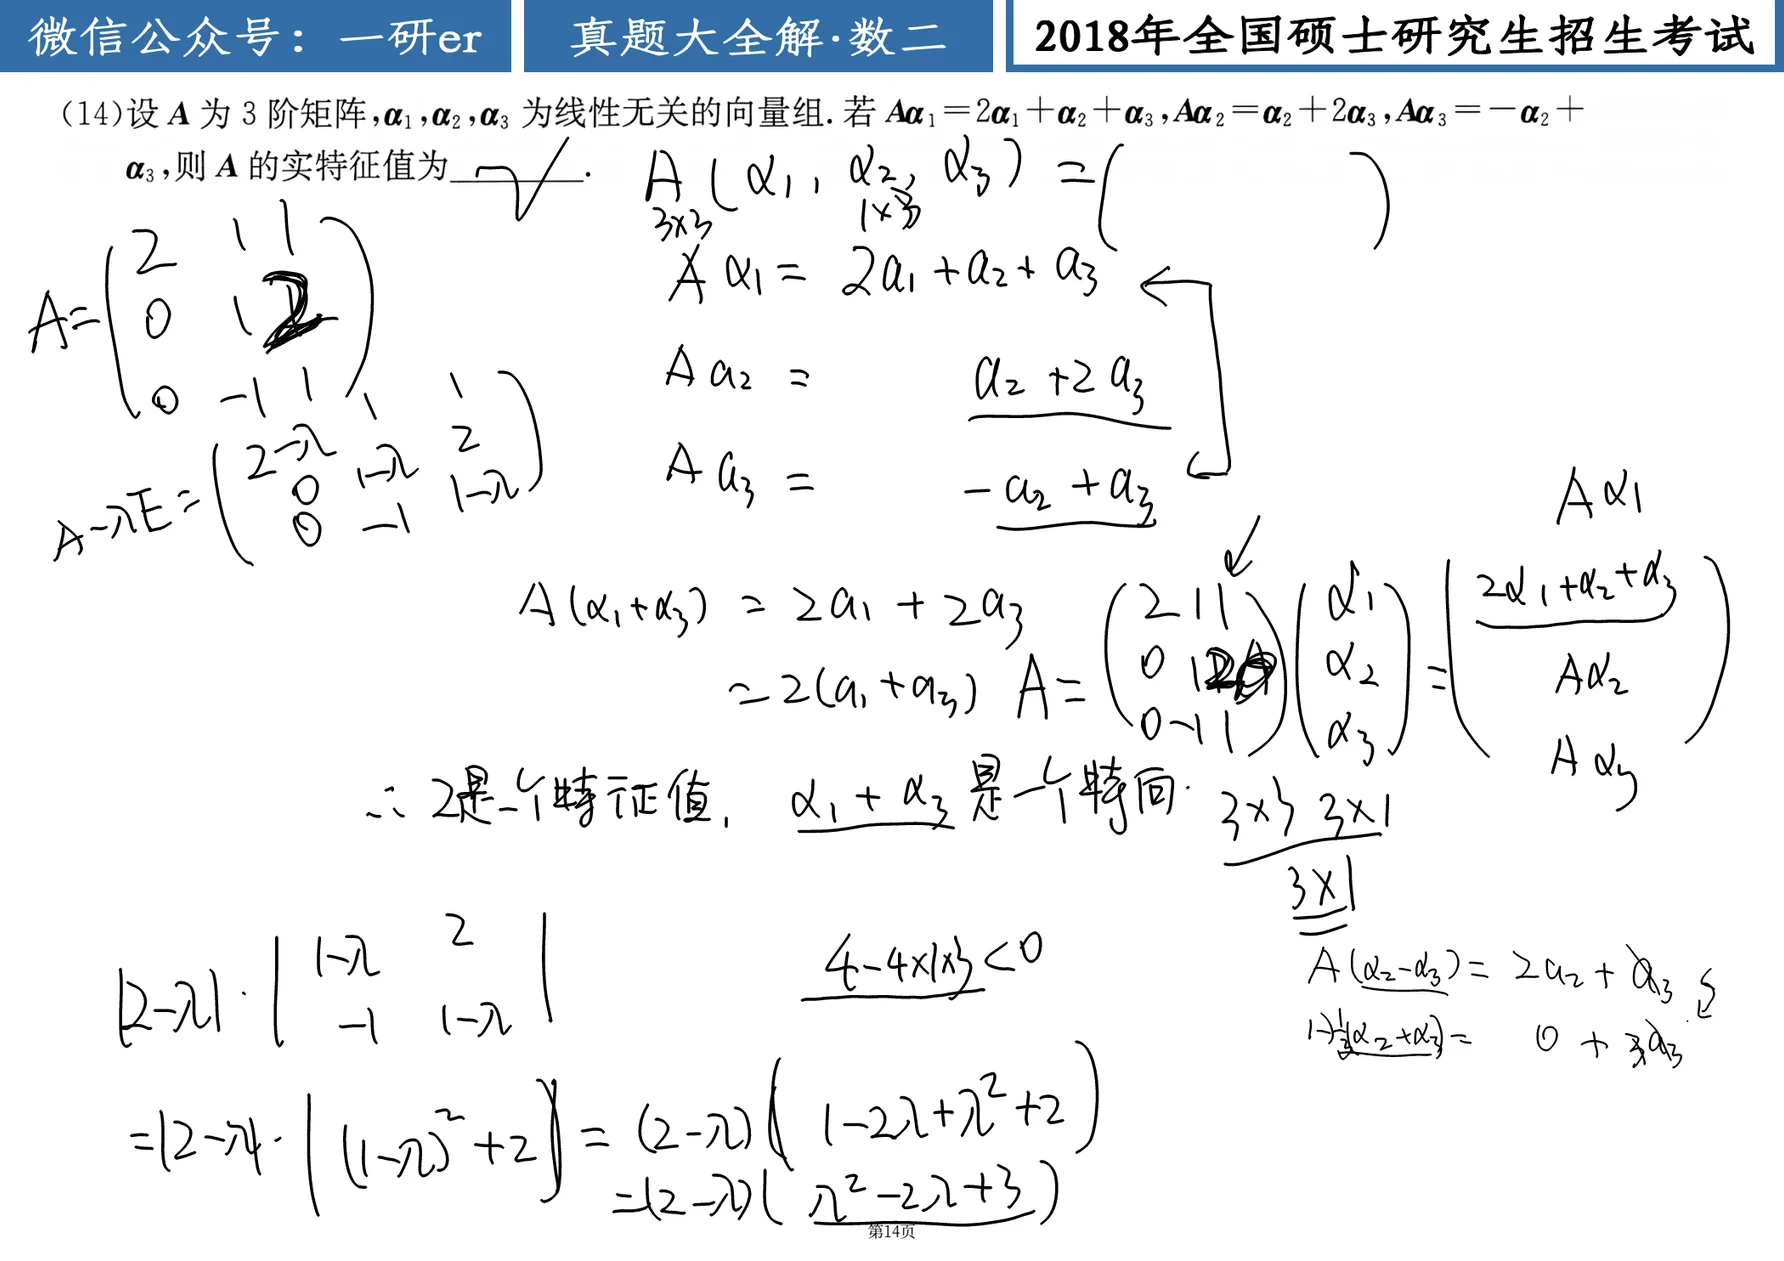 微信公众号：一研er
真题大全解·数二
2018年全国硕士研究生招生考试
(14)设 A 为 3 阶矩阵,α₁,α₂,α₃ 为线性无关的向量组.若 Aα₁=2α₁+α₂+α₃,Aα₂=α₂+2α₃,Aα₃=-α₂+
α₃,则 A 的实特征值为________.
A(α₁, α₂, α₃) = ( )
3×3 1×3
Aα₁ = 2a₁+a₂+a₃
Aa₂ = a₂+2a₃
Aa₃ = -a₂+a₃
A= ( 2 1 1
0 1 2
0 -1 1 )
A-λE= ( 2-λ 1 1
0 1-λ 2
0 -1 1-λ )
A(α₁+α₃) = 2a₁+2a₃
=2(a₁+a₃)
A= ( 2 1 1
0 1 2
0 -1 1 ) ( α₁
α₂
α₃ ) = ( 2α₁+α₂+α₃
Aα₂
Aα₃ )
Aα₁
∴ 2是一个特征值, α₁+α₃是一个特向.
3×3 3×1
3×1
|2-λ|· | 1-λ 2
-1 1-λ |
4-4×1×3<0
A(α₂-α₃)= 2a₂+a₃
(α₂+α₃)= 0+3a₃
=|2-λ|·|(1-λ)²+2| = (2-λ)(1-2λ+λ²+2)
=(2-λ)(λ²-2λ+3)
第14页